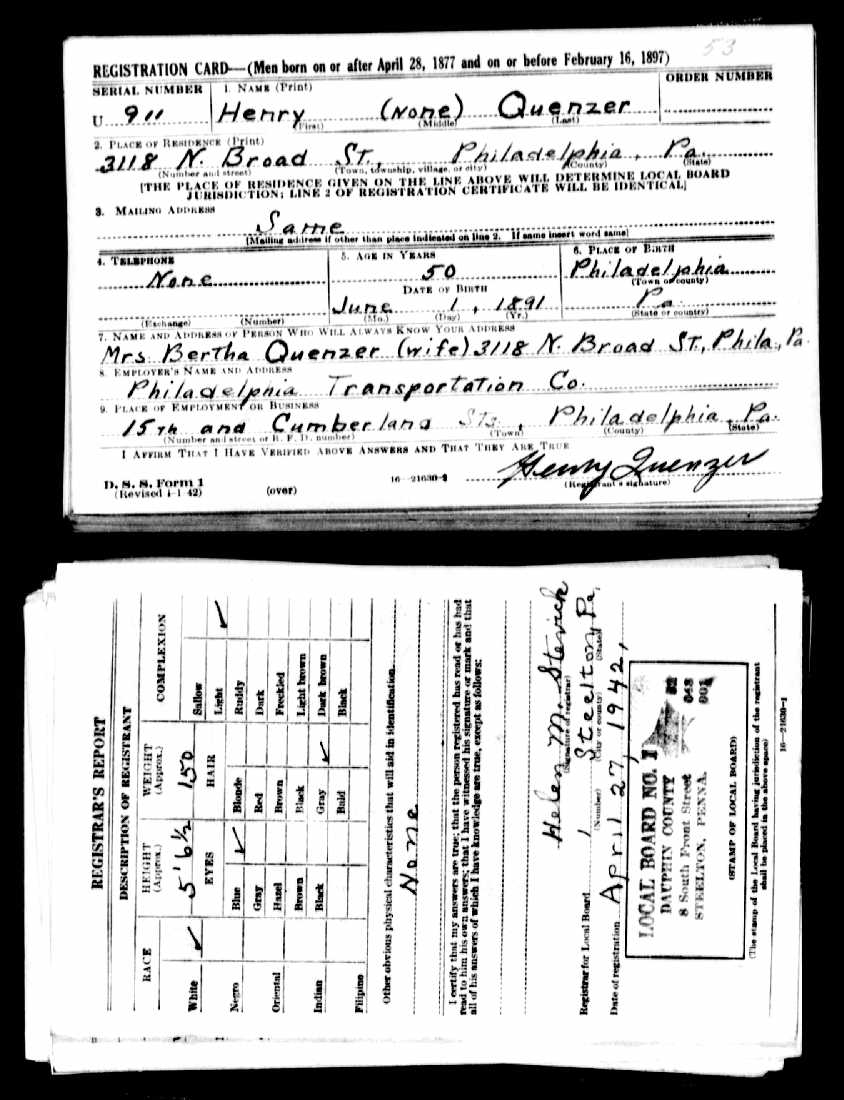 53
REGISTRATION CARD—(Men born on or after April 28, 1877 and on or before February 16, 1897)
SERIAL NUMBER 1. NAME (Print) ORDER NUMBER
U 911 Henry (None) Quenzer
(First) (Middle) (Last)
2. PLACE OF RESIDENCE (Print)
3118 N. Broad ST., Philadelphia, Pa.
(Number and street) (Town, township, village, or city) (County) (State)
[THE PLACE OF RESIDENCE GIVEN ON THE LINE ABOVE WILL DETERMINE LOCAL BOARD
JURISDICTION; LINE 2 OF REGISTRATION CERTIFICATE WILL BE IDENTICAL]
3. MAILING ADDRESS
Same
[Mailing address if other than place indicated on line 2. If same insert word same]
4. TELEPHONE 5. AGE IN YEARS 6. PLACE OF BIRTH
None 50 Philadelphia
DATE OF BIRTH (Town or county)
June 1, 1891 Pa.
(Exchange) (Number) (Mo.) (Day) (Yr.) (State or country)
7. NAME AND ADDRESS OF PERSON WHO WILL ALWAYS KNOW YOUR ADDRESS
Mrs. Bertha Quenzer (wife) 3118 N. Broad ST., Phila., Pa.
8. EMPLOYER'S NAME AND ADDRESS
Philadelphia Transportation Co.
9. PLACE OF EMPLOYMENT OR BUSINESS
15TH and Cumberland Sts., Philadelphia, Pa.
(Number and street or R. F. D. number) (Town) (County) (State)
I AFFIRM THAT I HAVE VERIFIED ABOVE ANSWERS AND THAT THEY ARE TRUE
Henry Quenzer
D. S. S. Form 1 16—21630-2 (Registrant's signature)
(Revised 4-1-42) (over)
REGISTRAR'S REPORT
DESCRIPTION OF REGISTRANT
RACE HEIGHT (Approx.) WEIGHT (Approx.) COMPLEXION
5' 6½ 150
White ✓ EYES HAIR Sallow
Light ✓
Negro Blue ✓ Blonde Ruddy
Oriental Gray Red Dark
Hazel Brown Freckled
Brown Black Light brown
Indian Black Gray ✓ Dark brown
Bald Black
Filipino
Other obvious physical characteristics that will aid in identification
None
I certify that my answers are true; that the person registered has read or has had
read to him his own answers; that I have witnessed his signature or mark and that
all of his answers of which I have knowledge are true, except as follows:
Helen M. Stevick
(Signature of registrar)
Registrar for Local Board 1 Steelton, Pa.
(Number) (City or county) (State)
Date of registration April 27, 1942,
LOCAL BOARD NO. 1 32
DAUPHIN COUNTY 043
8 South Front Street 001
STEELTON, PENNA.
(STAMP OF LOCAL BOARD)
(The stamp of the Local Board having jurisdiction of the registrant
shall be placed in the above space)
16—21630-1